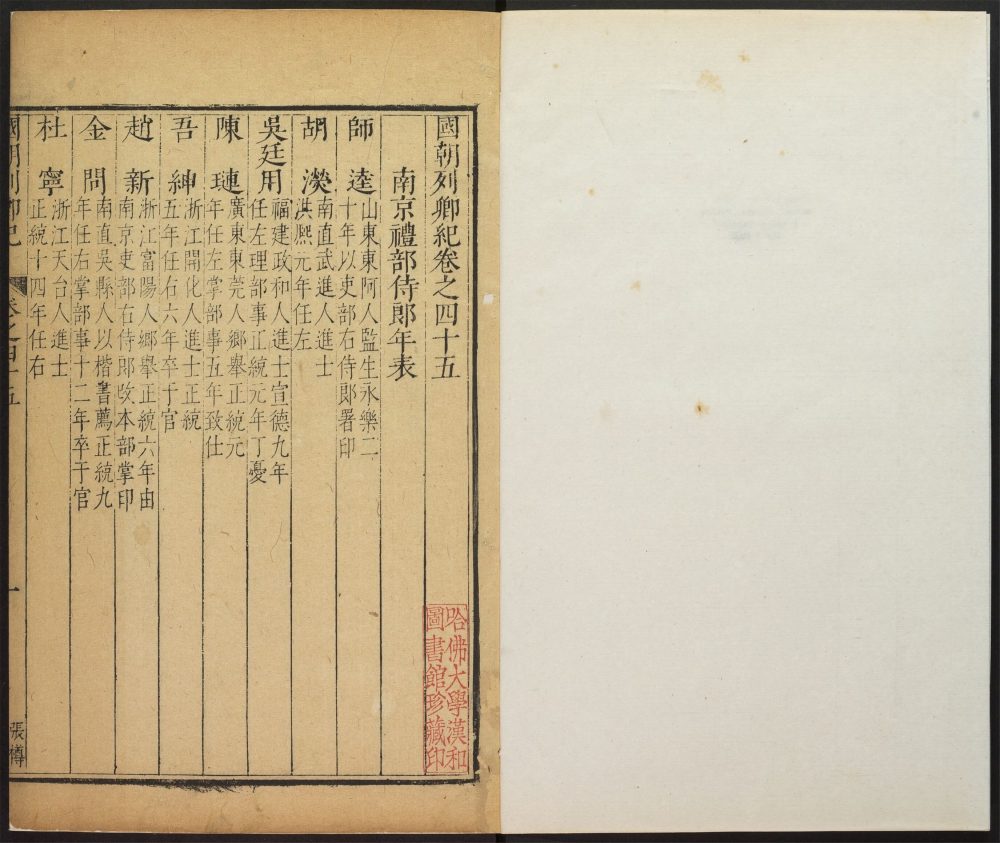 國朝列卿紀卷之四十五
南京禮部侍郎年表
師逵 山東東阿人監生永樂二
十年以吏部右侍郎署印
胡濙 南直武進人進士
洪熙元年任左
吳廷用 福建政和人進士宣德九年
任左理部事正統元年丁憂
陳璉 廣東東莞人鄉舉正統元
年任左掌部事五年致仕
吾紳 浙江開化人進士正統
五年任右六年卒于官
趙新 浙江富陽人鄉舉正統六年由
南京吏部右侍郎改本部掌印
金問 南直吳縣人以楷書薦正統九
年任右掌部事十二年卒于官
杜寧 浙江天台人進士
正統十四年任右
國朝列卿紀 卷之四十五 一 張樽
哈佛大學漢和
圖書館珍藏印